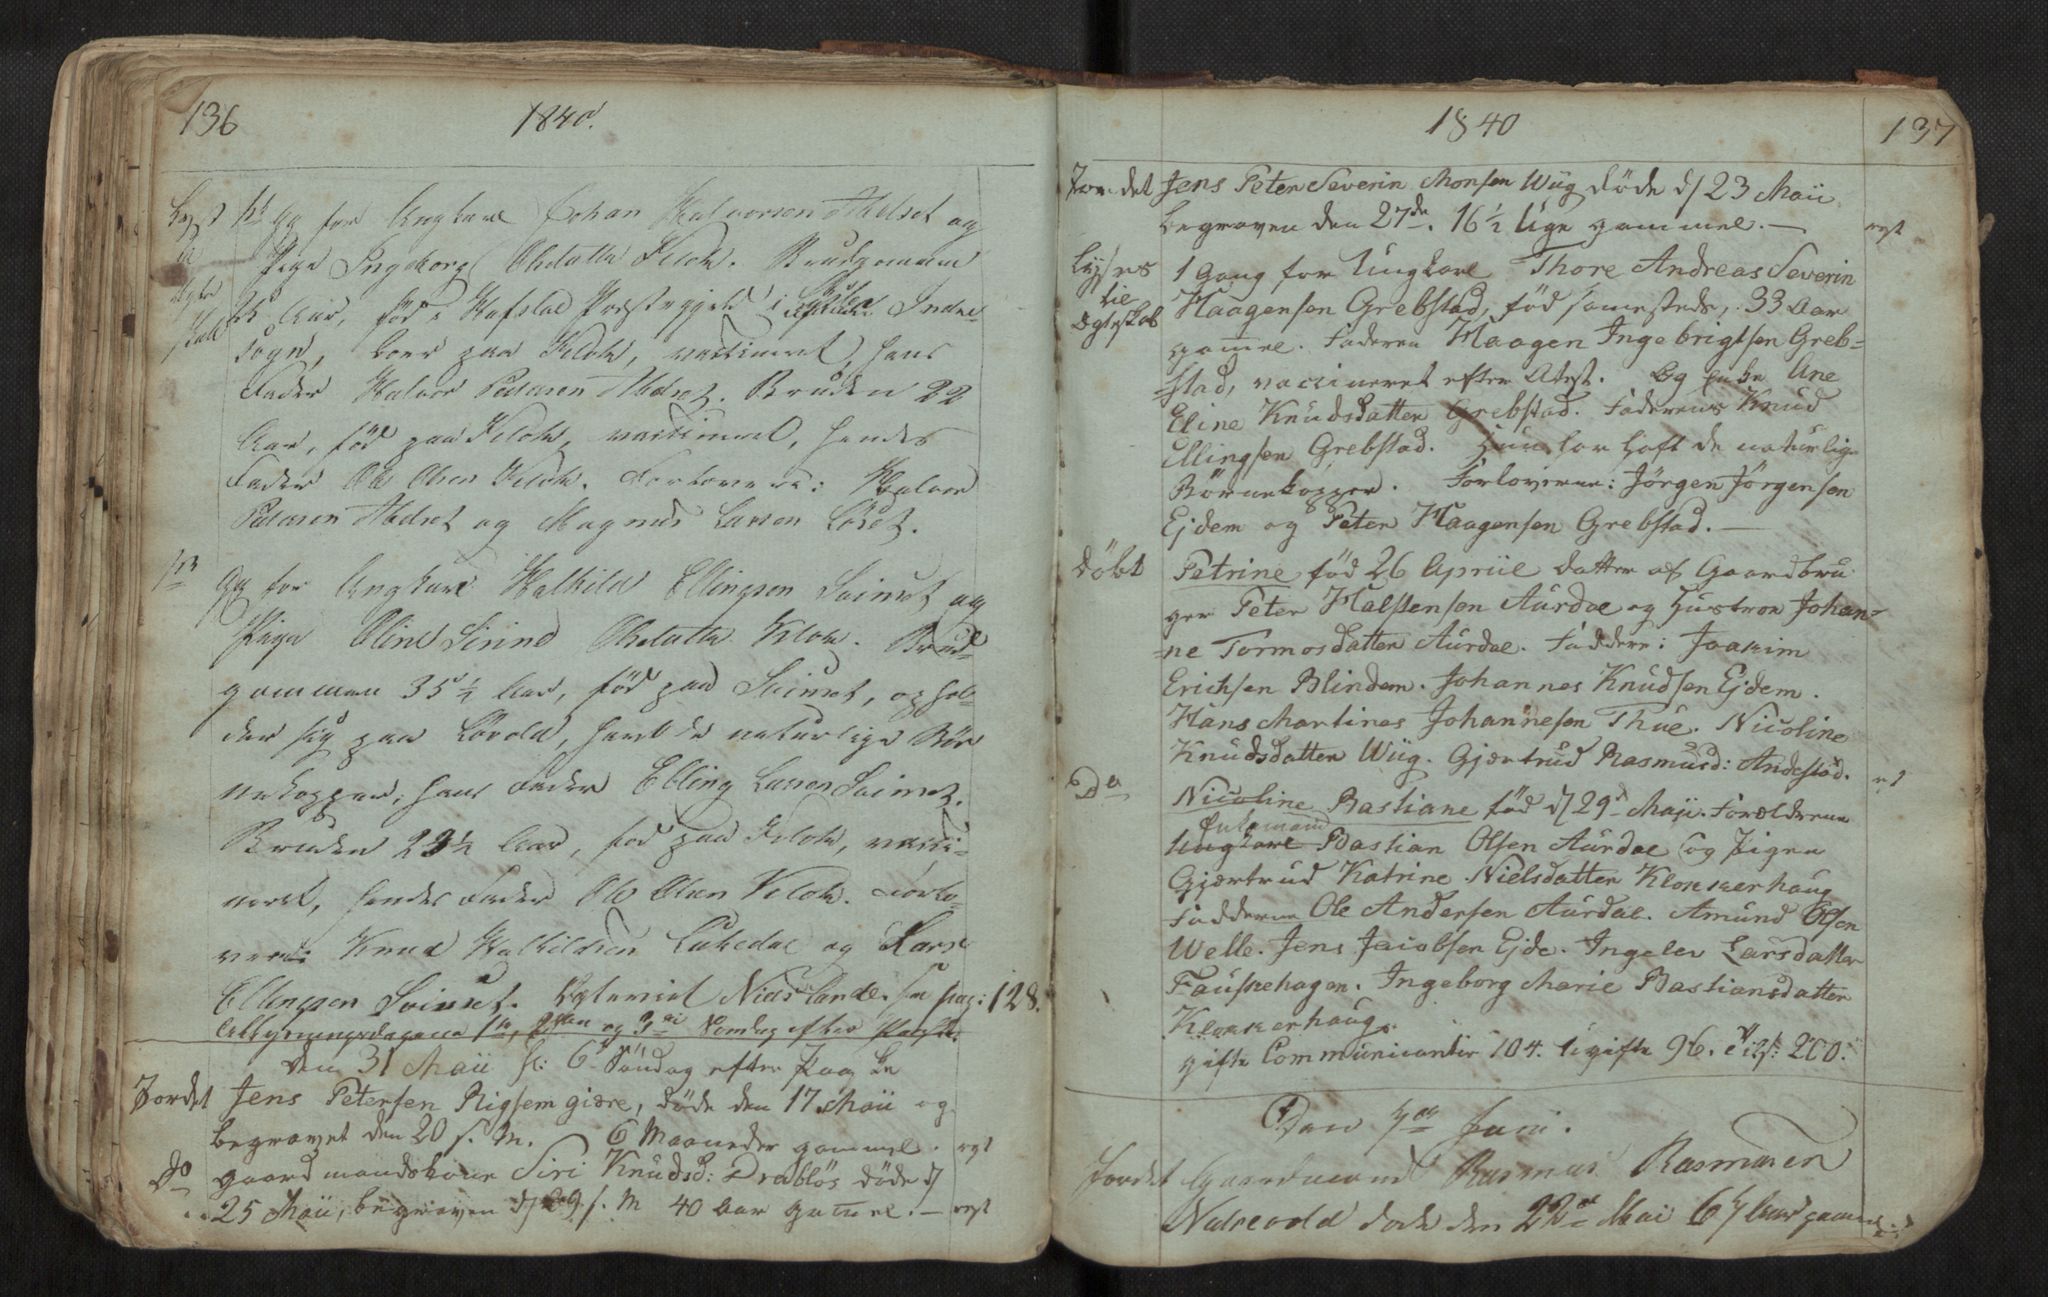 136 1840.
Lyst 1ste Gg for Ungkarl Johan Halvorsen Abelset og
til Pige Ingeborg Olsdatter Klok. Brudgommen
Aar, fød i Præstegjeld i
sogn, boer paa Klok, vaccineret, hans
Fader Halvor Pedersen Abelset. Bruden 22
Aar, fød paa Klok, vaccineret, hendes
Fader Ole Olsen Klok. Forlovere: Halvor
Pedersen Abelset og Magnus Larsen Løset.
Gg for Ungkarl Halkild Ellingsen Svimset og
Pige Oline Sirine Olsdatter Klok. Brud-
gommen 35½ Aar, fød paa Svimset, ophol-
der sig paa Løvold, havt de naturlige Bør-
nekopper, hans Fader Elling Larsen Svimset.
Bruden Aar, fød paa Klok, vacci-
neret, hendes Fader Ole Olsen Klok. Forlo-
vere: Knud Halkildsen og Lars
Ellingsen Svimset. see pag: 128.
1ste, 2den og 3die Søndag efter Paaske.
Den 31 Maii hl: 6te Søndag efter Paaske
Jordet Jens Petersen Rigsemgiære, døde den 17 Maii og
begravet den 20 s. M. 6 Maaneder gammel. ryt
Do gaardmandskone Siri Knudsd: Drabløs døde d
25 Maii, begraven d 29 s. M 40 Aar gamel. — ryt
1840 137
Jordet Jens Peter Severin Monsen Wiig døde d 23 Maii
begraven den 27de. 16½ Uge gammel. — ryt
Lysnes 1 Gang for Ungkarl Thore Andreas Severin
til Haagensen Grebstad, fød samesteds, 33 Aar
Egteskab gamel. Faderen Haagen Ingebrigtsen Greb-
stad, vaccineret efter Atest. Og Enke Ane
Eline Knudsdatter Grebstad. Faderens Knud
Ellingsen Grebstad. Hun har haft de naturlige
Børnekopper. Forloverne: Jørgen Jørgensen
Ejdem og Peter Haagensen Grebstad. —
Døbt Petrine fød 26 Apriil Datter af Gaardbru
ger Peter Halstensen Aurdal og Hustroe Johan-
ne Tormosdatter Aurdal. Faddere: Joakim
Erichsen Blindem. Johannes Knudsen Ejdem.
Hans Martines Johannesen Thue. Nicoline
Knudsdatter Wiig. Gjærtrud Rasmusd: Andestad.
Do Nicoline Bastiane fød d 29d Maji. Forældrene
Enkemand
Ungkarl Bastian Olsen Aurdal og Pigen
Gjærtrud Katrine Nielsdatter Klokkerhaug
Fadderne Ole Andersen Aurdal. Amund Olsen
Welle. Jens Jacobsen Ejde. Ingelev Larsdatter
Fauskehagen. Ingeborg Marie Bastiansdatter
Klokkerhaug.
gifte Communicanter 104. Ugifte 96. Tils: 200.
Den 7de Juni.
Jordet Gaardmand Rasmus Rasmusen
døde den 22de Mai 67 Aar gammel